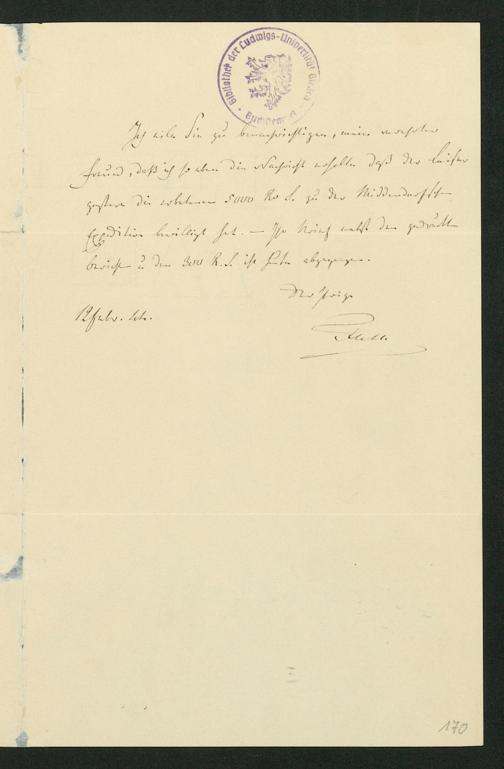 Bibliothek der Ludwigs-Universität Giessen
Ich eile Sie zu benachrichtigen, mein verehrter
Freund, daß ich so eben die Nachricht erhalte daß der Kaiser
gestern die erbetenen 5000 R. S. zu der Middendorffs
Expedition bewilligt hat. – Ihr Brief nebst dem gedruckten
Bericht u den 300 R. S. ist heute abgegangen.
Der Ihrige
12 Febr. 44.
170